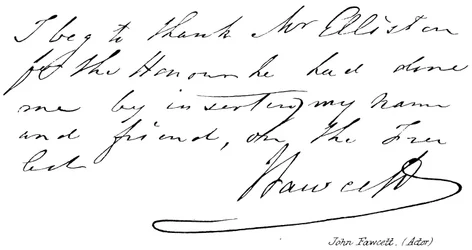 I beg to thank Mr Elliston
for the Honour he had done
me by inserting my name
and friend, on the Free
list
J Fawcett
John Fawcett. (Actor)